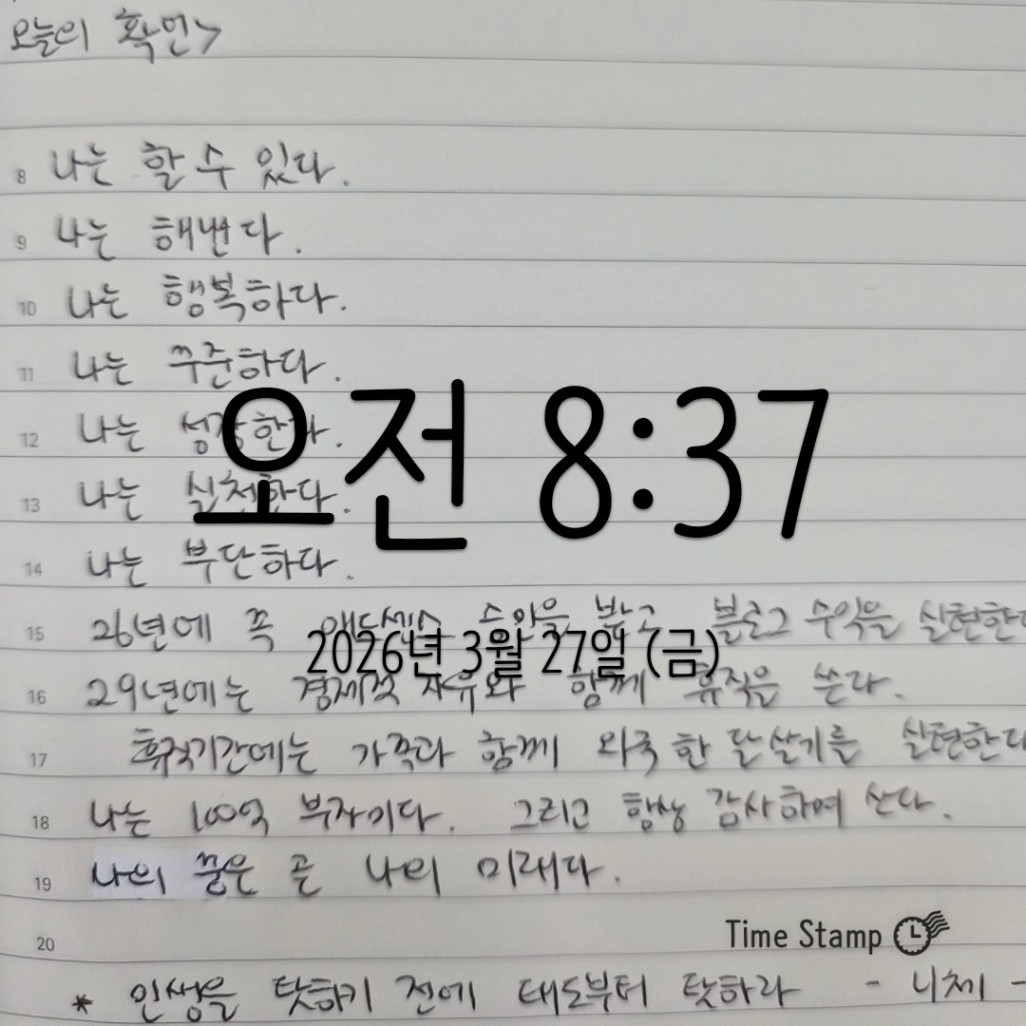 오늘의 확언>
8 나는 할 수 있다.
9 나는 해낸다.
10 나는 행복하다.
11 나는 꾸준하다.
12 나는 성장한다.
13 나는 실천한다.
오전 8:37
14 나는 부단하다.
15 26년에 꼭 애드센스 수익을 받고 블로그 수익을 실현한다
2026년 3월 27일 (금)
16 29년에는 경제적 자유와 함께 휴직을 쓴다.
17 휴직기간에는 가족과 함께 외국 한 달 살기를 실현한다
18 나는 100억 부자이다. 그리고 항상 감사하며 산다.
19 나의 꿈은 곧 나의 미래다.
Time Stamp
20
* 인생을 탓하기 전에 태도부터 탓하라 - 니체 -